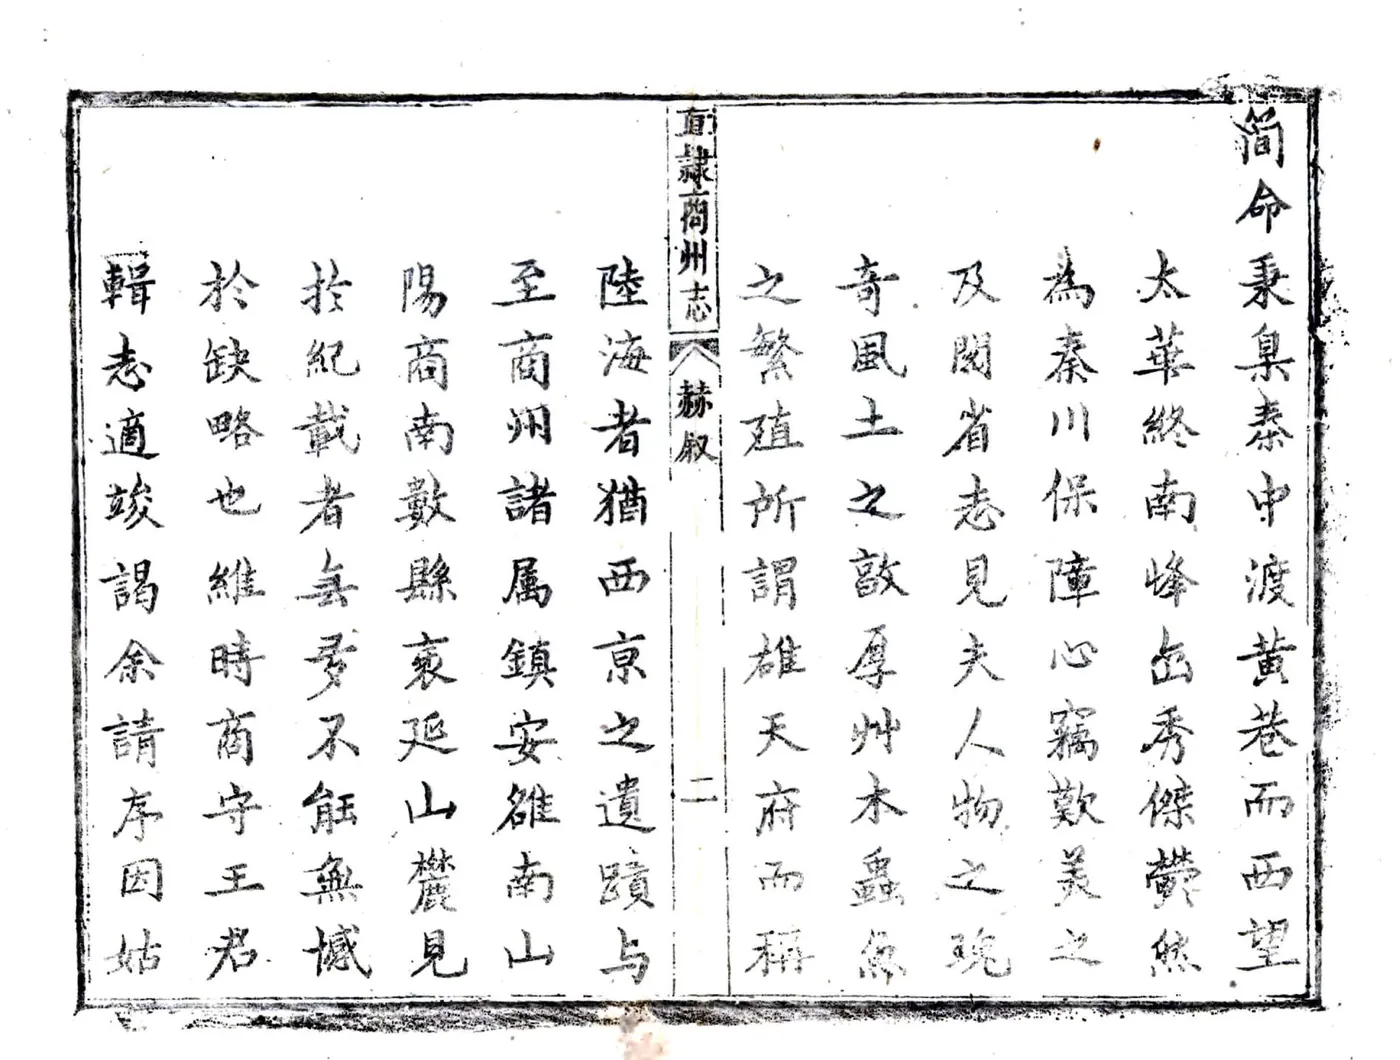 簡命秉臬秦中渡黃巷而西望
太華終南峰巒秀傑鬱然
為秦川保障心竊歎美之
及閱省志見夫人物之瑰
奇風土之敦厚艸木蟲魚
之繁殖所謂雄天府而稱
直隸商州志
赫叙
二
陸海者猶西京之遺蹟与
至商州諸属鎮安雒南山
陽商南數縣裹延山麓見
於紀載者無多不能無憾
於缺略也維時商守王君
輯志適竣謁余請序因姑